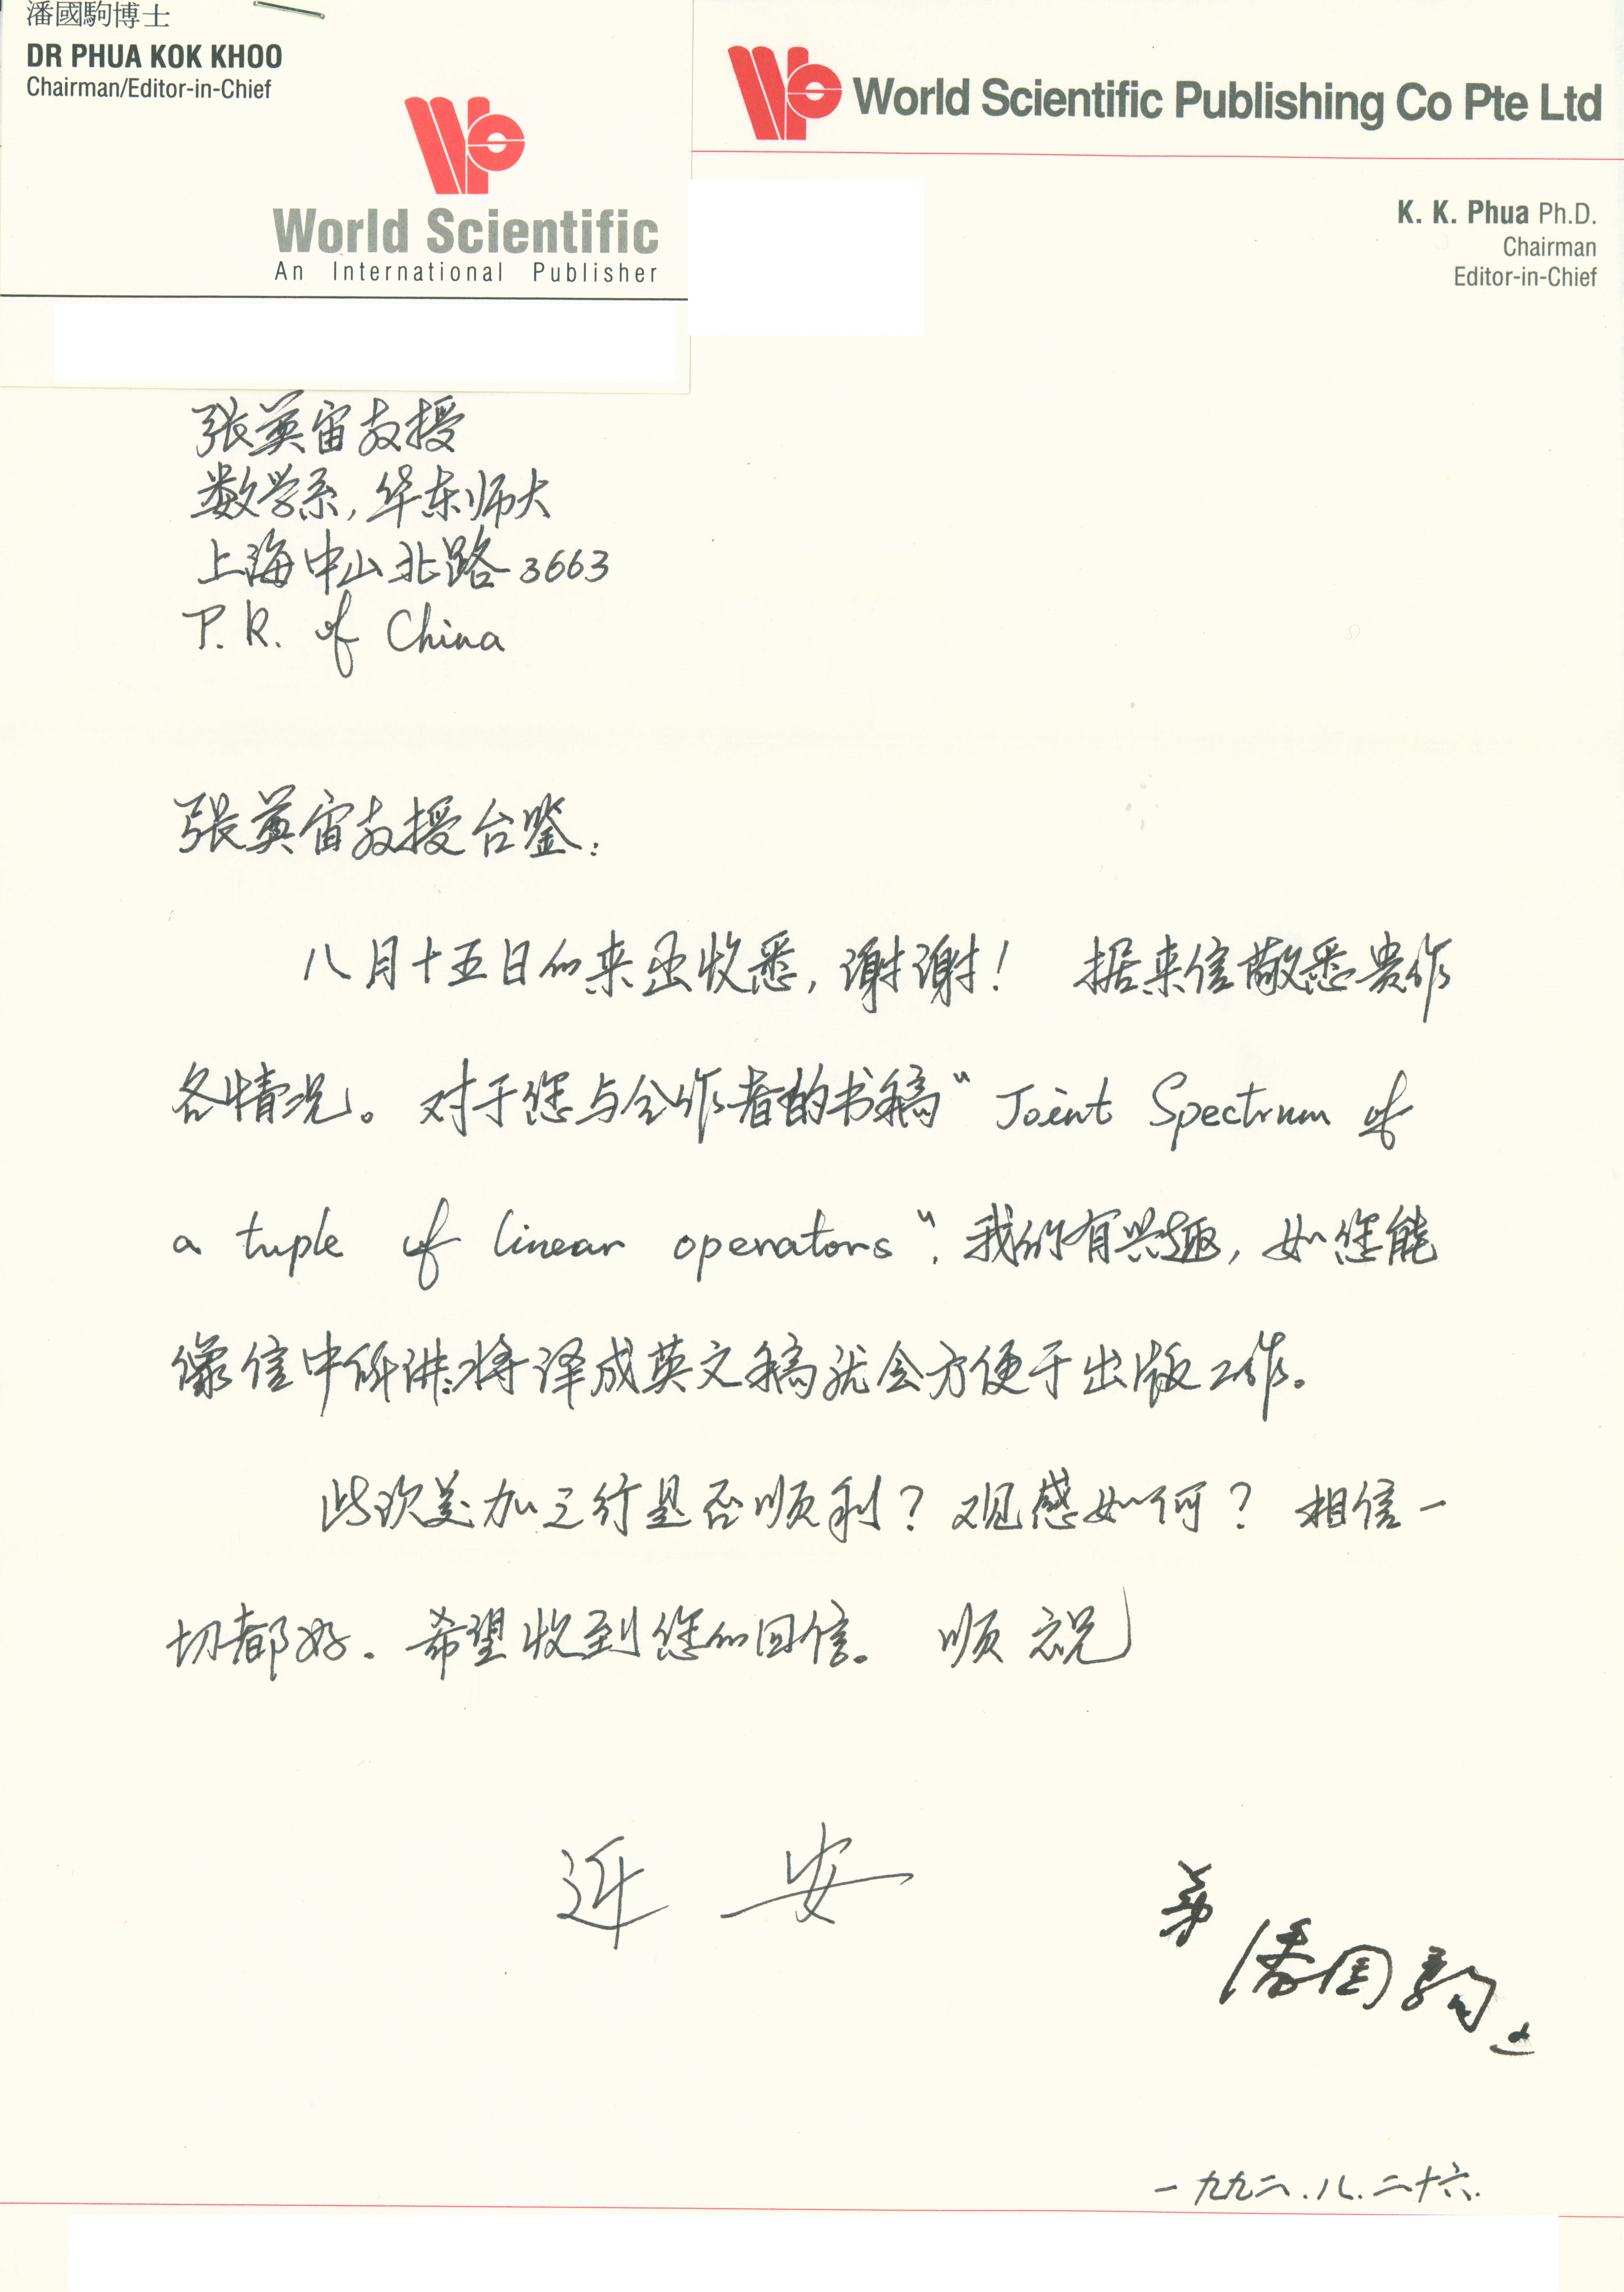 潘國駒博士
DR PHUA KOK KHOO
Chairman/Editor-in-Chief
World Scientific
An International Publisher
World Scientific Publishing Co Pte Ltd
K. K. Phua Ph.D.
Chairman
Editor-in-Chief
张英宙教授
数学系, 华东师大
上海中山北路 3663
P. R. of China
张英宙教授台鉴:
八月十五日的来函收悉, 谢谢! 据来信敬悉贵作
各情况。对于您与合作者的书稿 "Joint Spectrum of
a tuple of linear operators", 我们有兴趣, 如您能
像信中所讲将译成英文稿就会方便于出版工作。
此次美加之行是否顺利? 观感如何? 相信一
切都好. 希望收到您的回信。 顺祝
近安
弟
潘国驹上
一九九二.八.二十六.